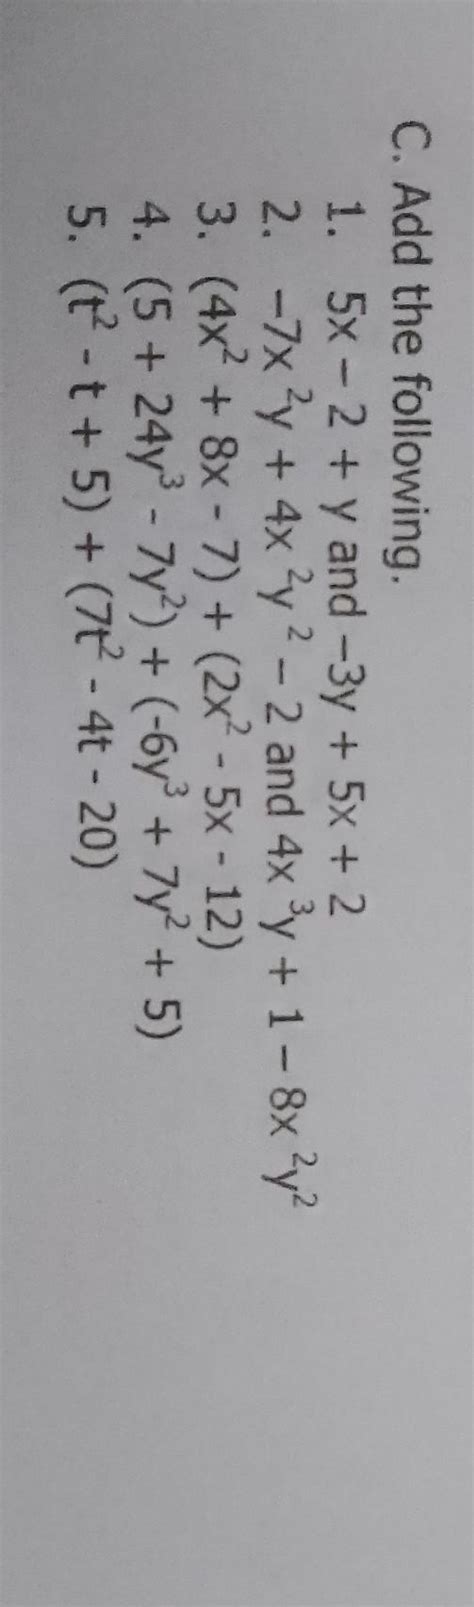 C. Add the following.
1. 5x – 2 + y and –3y + 5x + 2
2. –7x ²y + 4x ²y ² – 2 and 4x ³y + 1 – 8x ²y²
3. (4x² + 8x - 7) + (2x² - 5x - 12)
4. (5 + 24y³ - 7y²) + (-6y³ + 7y² + 5)
5. (t² - t + 5) + (7t² - 4t - 20)